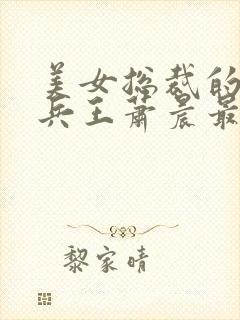 美女总裁的
兵王萧晨最
黎家晴